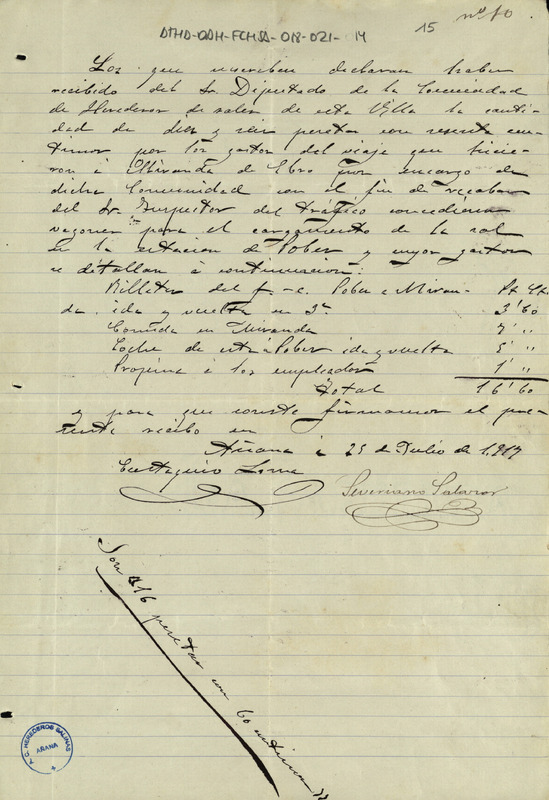 DTHD-QDH-FCHSA-018-021-14
15 nº 10
Los que suscriben declaran haber
recibido del Sr. Diputado de la Comunidad
de Herederos de sales de esta Villa la canti-
dad de diez y seis pesetas con sesenta cen-
timos por los gastos del viaje que hicie-
ron á Miranda de Ebro por encargo de
dicha Comunidad con el fin de recabar
del Sr. Inspector del tráfico concediera
vagones para el cargamento de la sal
en la estacion de Pobes y cuyos gastos
se detallan á continuacion:
Billetes del f.-c. Pobes a Miran- Pts Cts
da. ida y vuelta en 3ª 3'60
Comida en Miranda 7 "
Coche de esta á Pobes ida y vuelta 5 "
Propina a los empleados 1 "
Total 16'60
y para que conste firmamos el pre-
sente recibo en
Añana á 25 de Julio de 1.917
Eustaquio
Severiano Salazar
Son 16 pesetas con 60 centimos
T. C. HEREDEROS SALINAS
AÑANA